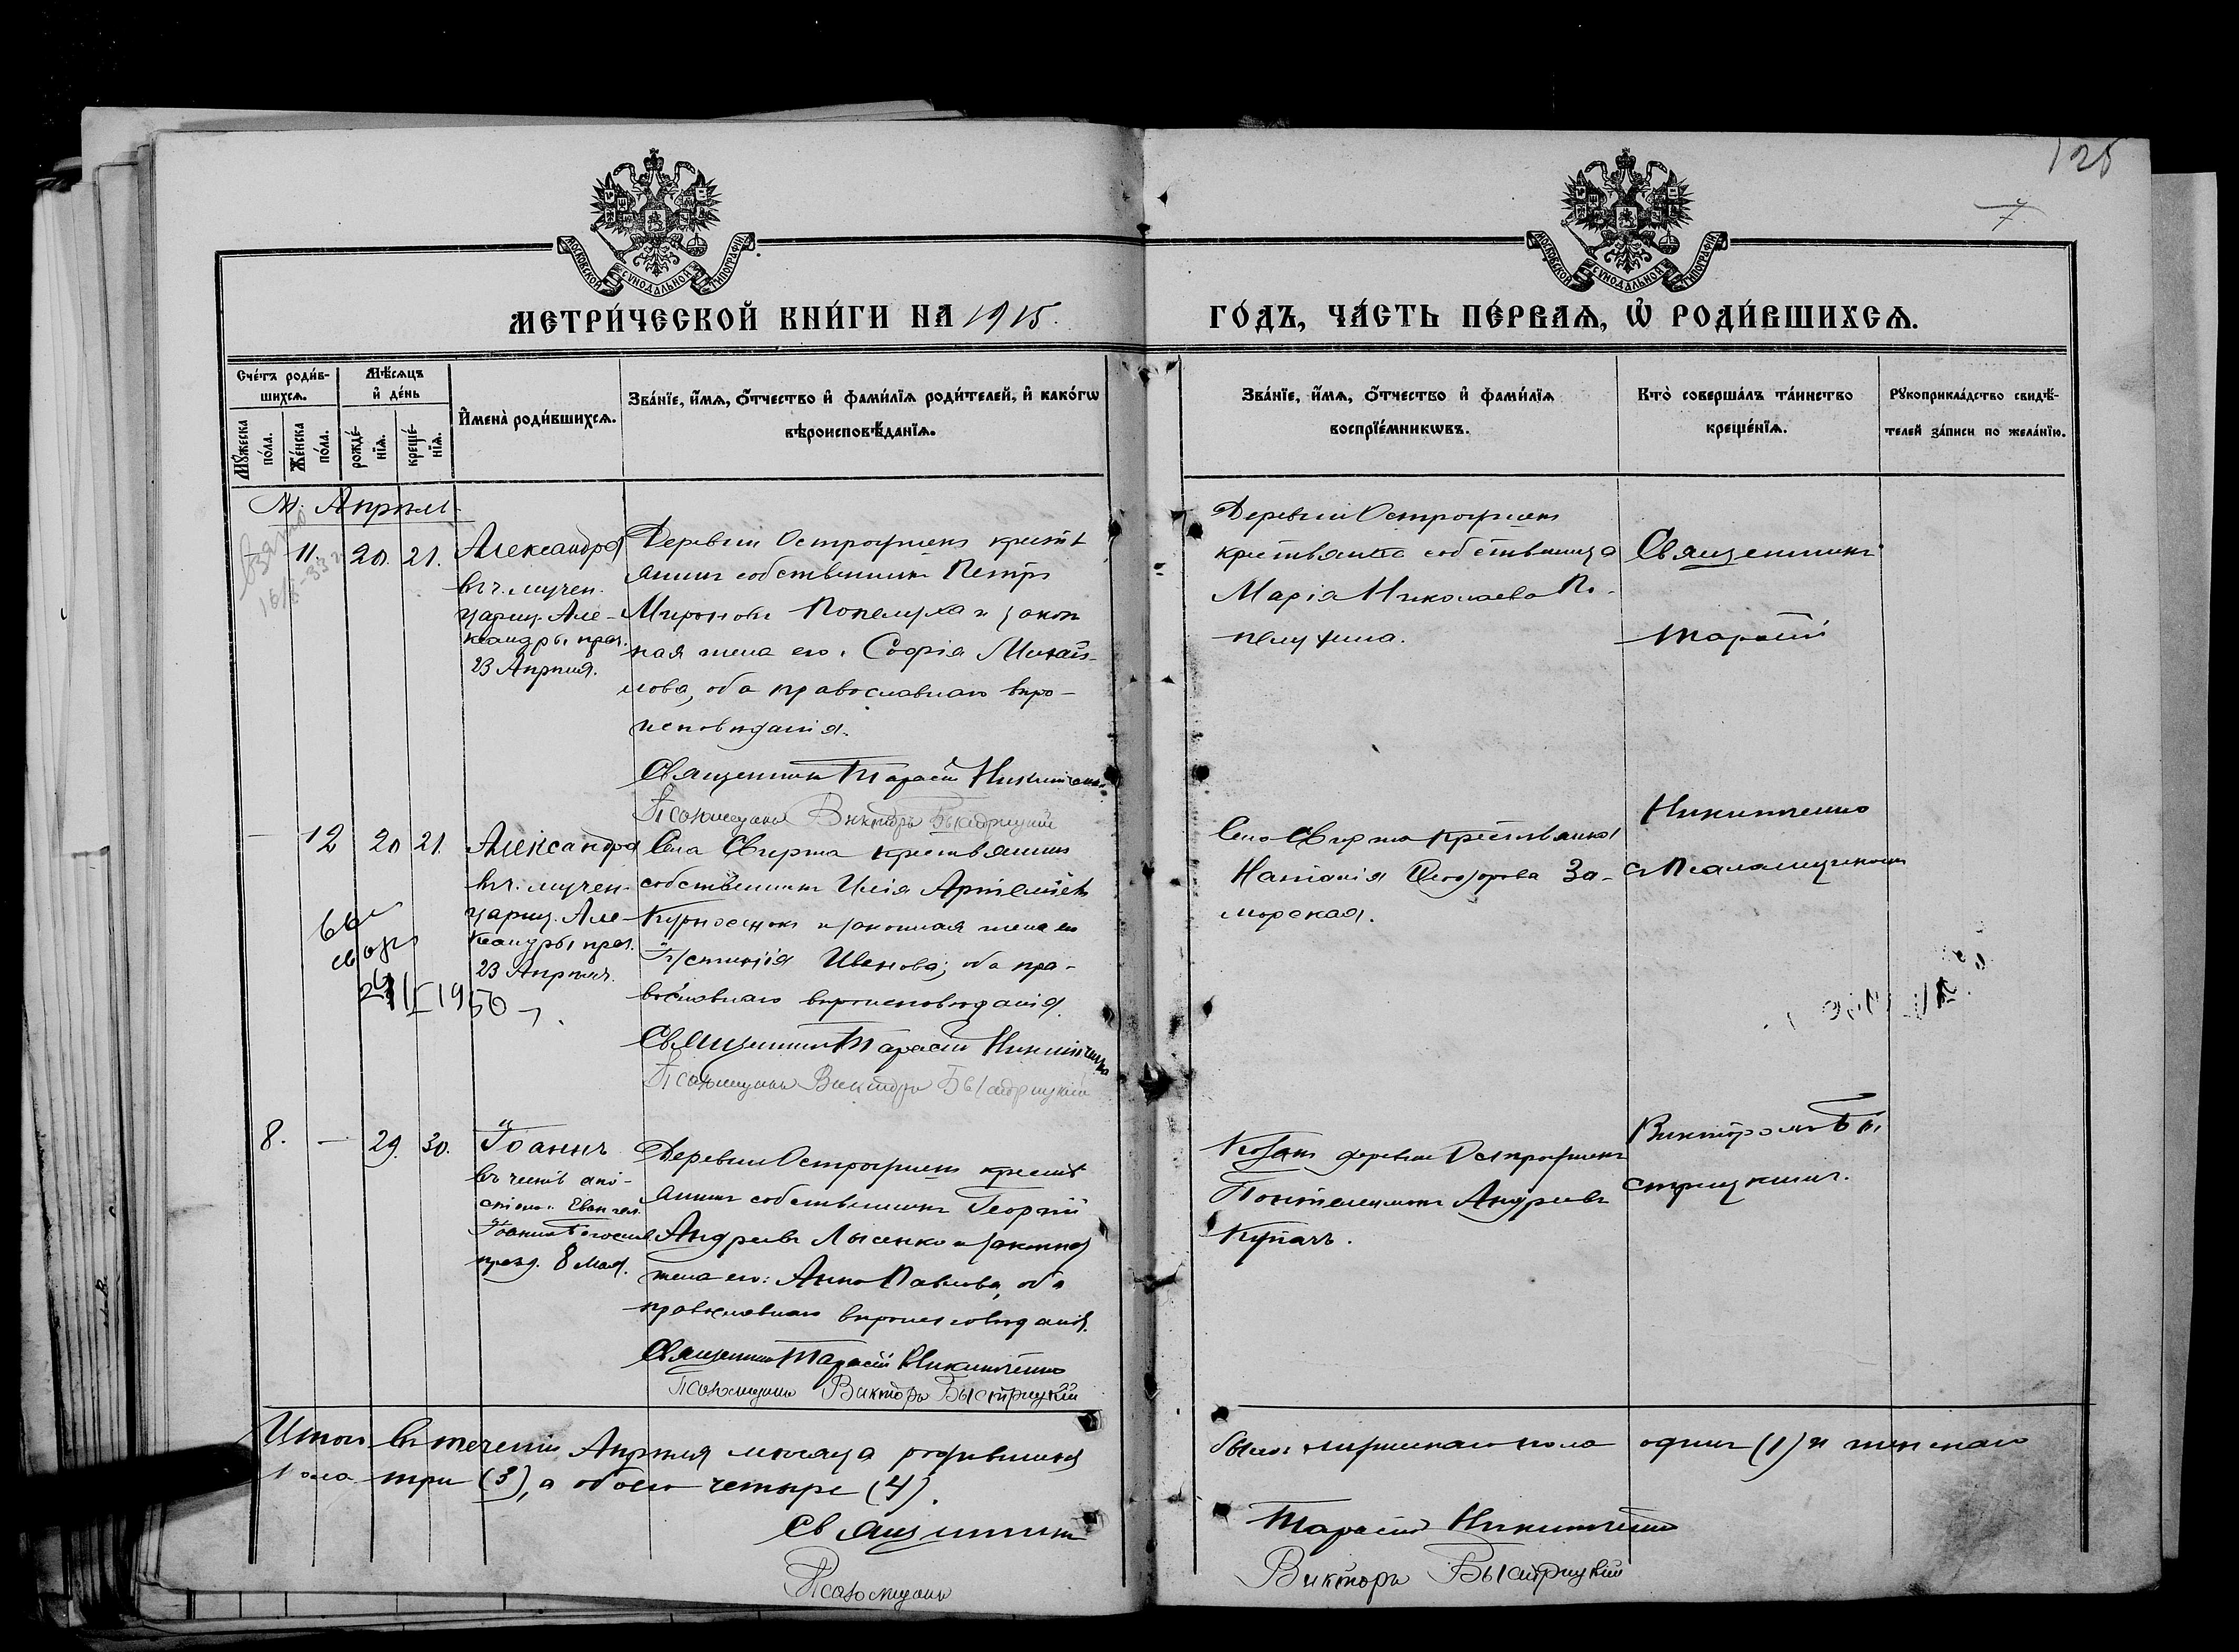 125
7
МОСКОВСКОЙ СѴНОДАЛЬНОЙ ТИПОГРАФІИ
МОСКОВСКОЙ СѴНОДАЛЬНОЙ ТИПОГРАФІИ
МЕТРИ́ЧЕСКОЙ КНИ́ГИ НА 1915.
ГО́ДЪ, ЧА́СТЬ ПЕ́РВАѦ, Ѡ҆ РОДИ́ВШИХСѦ.
Сче́тъ роди́в-
шихсѧ.
Мꙋ́жеска по́ла.
Же́нска по́ла.
Мѣ́сѧцъ
и҆ де́нь
рожде́-
нїѧ.
креще́-
нїѧ.
И҆мена̀ роди́вшихсѧ.
Зва́нїе, и҆́мѧ, ѻ҆́тчество и҆ фами́лїѧ роди́телей, и҆ како́гѡ
вѣроисповѣ́данїѧ.
Зва́нїе, и҆́мѧ, ѻ҆́тчество и҆ фами́лїѧ
воспрїе́мникѡвъ.
Кто̀ соверша́лъ та́инство
креще́нїѧ.
Рꙋкоприкла́дство свидѣ́-
телей за́писи по жела́нїю.
М. Апрѣль
11. 20. 21.
Александра
вч. мучен.
цариц. Але-
ксандры праз.
23 Апрѣля.
Деревни кресть
янинъ собственникъ Петръ
Мироновъ Попелуха и закон
ная жена его: Софія Михай-
лова, оба православнаго вѣро-
исповѣданія.
Священникъ Тарасій Никитченко
Псаломщикъ Викторъ Быстрицкій
Деревни
крестьянка собственница
Марія Николаева По-
пелухина.
Священникъ
Тарасій
12 20 21.
Александра
вч. мучен.
цариц. Але-
ксандры праз.
23 Апрѣля.
24 II 1950
Села крестьянинъ
собственникъ Илія Артемьевъ
и законная жена его
Іустинія Иванова, оба пра-
вославнаго вѣроисповѣданія.
Священникъ Тарасій Никитченко
Псаломщикъ Викторъ Быстрицкій
Села крестьянка
Наталія Ѳеодорова За-
морская.
Никитченко
съ Псаломщикомъ
8. — 29. 30.
Іоаннъ
въ честь апо-
стола Евангел.
Іоанна Богослова
празд. 8 Мая.
Деревни крестъ
янинъ собственникъ Георгій
Андреевъ Лысенко и законная
жена его: Анна Павлова, оба
православнаго вѣроисповѣданія.
Священникъ Тарасій Никитченко
Псаломщикъ Викторъ Быстрицкій
Козакъ деревни
Пантелеимонъ Андреевъ
Купачъ.
Викторомъ Бы
стрицкимъ.
Итого въ теченіи Апрѣля мѣсяца родившихся
было: мужескаго пола одинъ (1) и женскаго
пола три (3), а обоего четыре (4).
Священникъ
Тарасій Никитченко
Псаломщикъ
Викторъ Быстрицкій